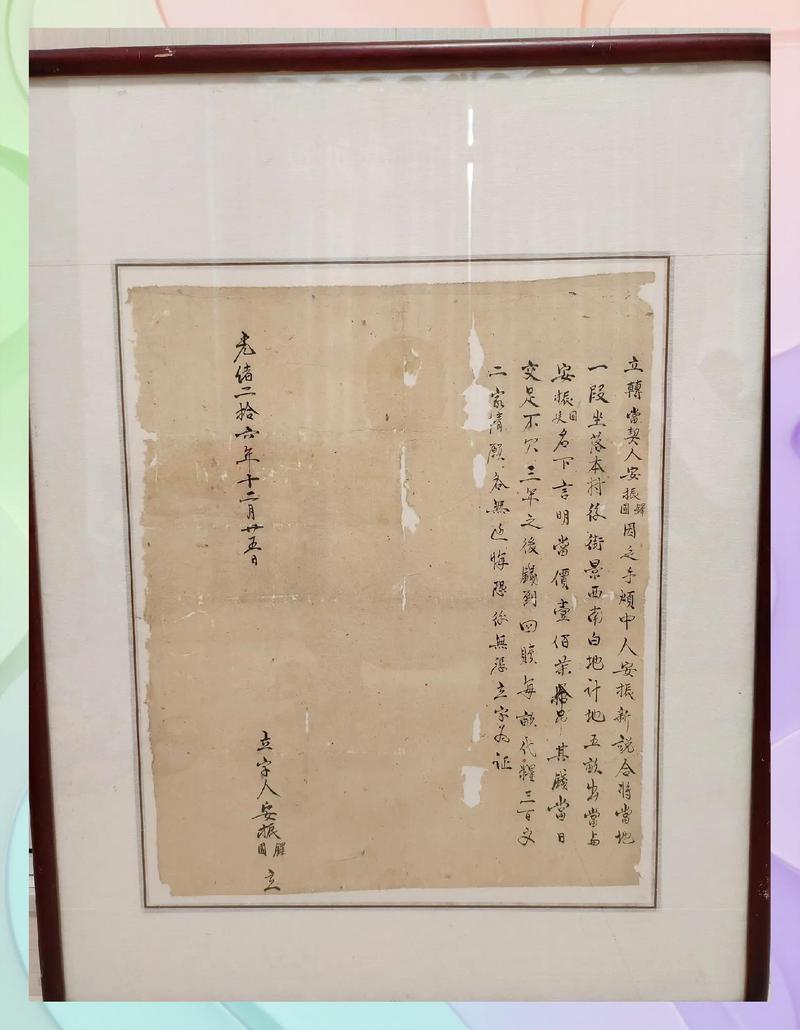 立轉當契人安振國因乏手煩中人安振新説合將當地
一段坐落本村後街景西南白地計地五畝出當与
安振國名下言明當價壹佰其錢當日
交足不欠三年之後錢到回贖每畝代糧三百文
二家情願各無返悔恐後無憑立字為证
光绪二拾六年十二月廿五日
立字人安振國立